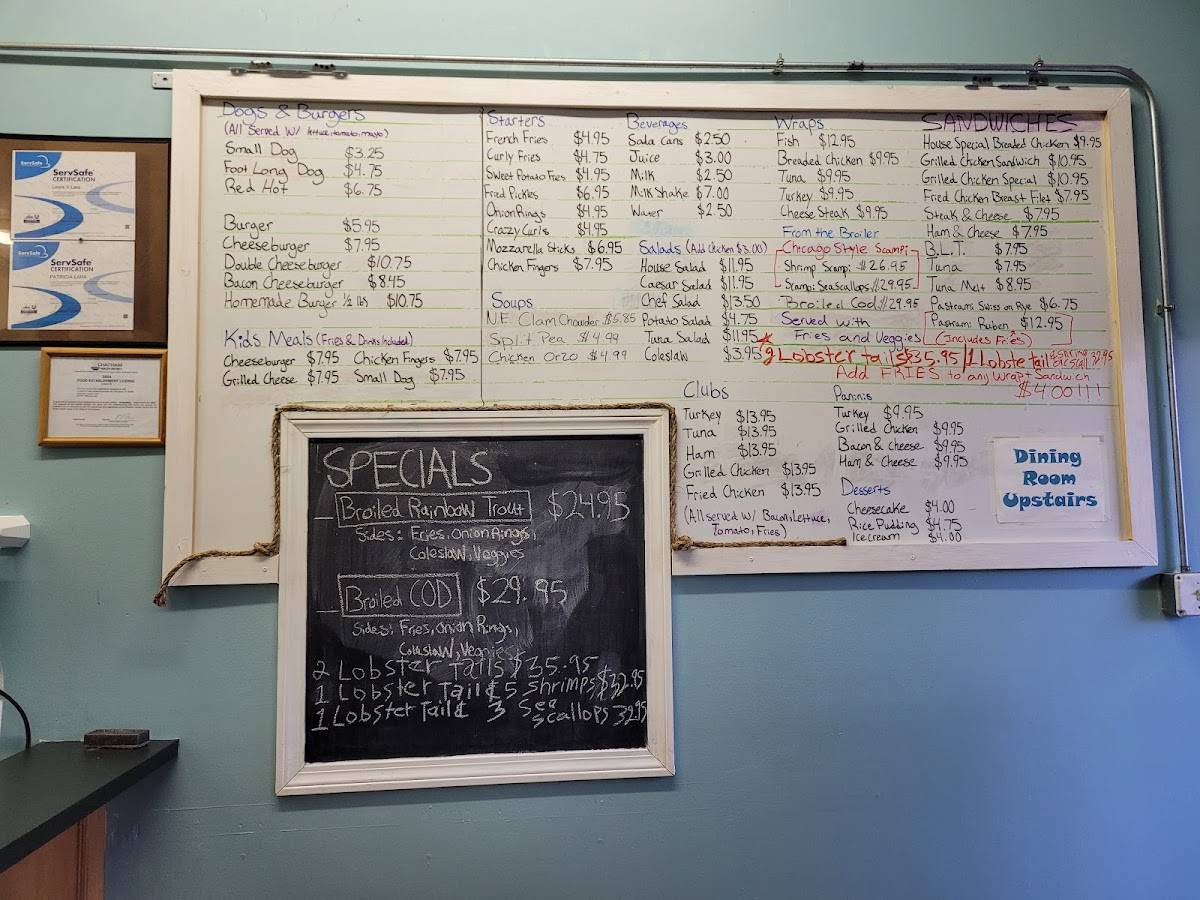 ServSafe
ServSafe
CERTIFICATION
ServSafe
ServSafe
CERTIFICATION
PATRICIA LANE
CHATHAM
FOOD ESTABLISHMENT LICENSE
Dogs & Burgers
(All Served W/ lettuce, tomato, mayo)
Small Dog $3.25
Foot Long Dog $4.75
Red Hot $6.75
Burger $5.95
Cheeseburger $7.95
Double Cheeseburger $10.75
Bacon Cheeseburger $8.45
Homemade Burger ½ lbs $10.75
Kids Meals (Fries & Drinks Included)
Cheeseburger $7.95 Chicken Fingers $7.95
Grilled Cheese $7.95 Small Dog $7.95
Starters
French Fries $4.95
Curly Fries $4.75
Sweet Potato Fries $4.95
Fried Pickles $6.95
Onion Rings $4.95
Crazy Curls $4.95
Mozzarella Sticks $6.95
Chicken Fingers $7.95
Soups
N.E. Clam Chowder $5.85
Split Pea $4.99
Chicken Orzo $4.99
Beverages
Soda cans $2.50
Juice $3.00
Milk $2.50
Milk Shake $7.00
Water $2.50
Salads (Add Chicken $3.00)
House Salad $11.95
Caesar Salad $11.95
Chef Salad $13.50
Potato Salad $4.75
Tuna Salad $11.95
Coleslaw $3.95
Wraps
Fish $12.95
Breaded Chicken $9.95
Tuna $9.95
Turkey $9.95
Cheese Steak $9.95
From the Broiler
Chicago Style Scampi
Shrimp Scampi $26.95
Scampi Sea Scallops $29.95
Broiled Cod $29.95
Served with
Fries and Veggies
SANDWICHES
House Special Breaded Chicken $9.95
Grilled Chicken Sandwich $10.95
Grilled Chicken Special $10.95
Fried Chicken Breast Filet $7.95
Steak & Cheese $7.95
Ham & Cheese $7.95
B.L.T. $7.95
Tuna $7.95
Tuna Melt $8.95
Pastrami Swiss on Rye $6.75
Pastrami Ruben $12.95
(Includes Fries)
2 Lobster tails $35.95 / 1 Lobste tail
Add FRIES to any Wrap & Sandwich
$4.00!!!
Clubs
Turkey $13.95
Tuna $13.95
Ham $13.95
Grilled Chicken $13.95
Fried Chicken $13.95
(All served W/ Bacon, Lettuce,
Tomato, Fries)
Paninis
Turkey $9.95
Grilled Chicken $9.95
Bacon & Cheese $9.95
Ham & Cheese $9.95
Desserts
Cheesecake $4.00
Rice Pudding $4.75
Icecream $4.00
Dining
Room
Upstairs
SPECIALS
Broiled Rainbow Trout $24.95
Sides: Fries, Onion Rings,
Coleslaw, Veggies
Broiled COD $29.95
Sides: Fries, onion Rings,
Coleslaw, Veggies
2 Lobster Tails $35.95
1 Lobster Tail & 5 Shrimps $32.95
1 Lobster Tail & 3 Sea Scallops 32.95